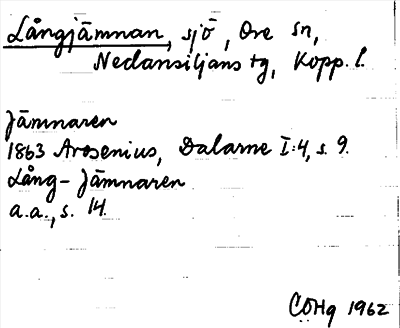 Långjämnan, sjö, Ore sn,
Nedansiljans tg, Kopp. l.
Jämnaren
1863 Arosenius, Dalarne I:4, s. 9.
Lång-Jämnaren
a.a., s. 14.
COHg 1962